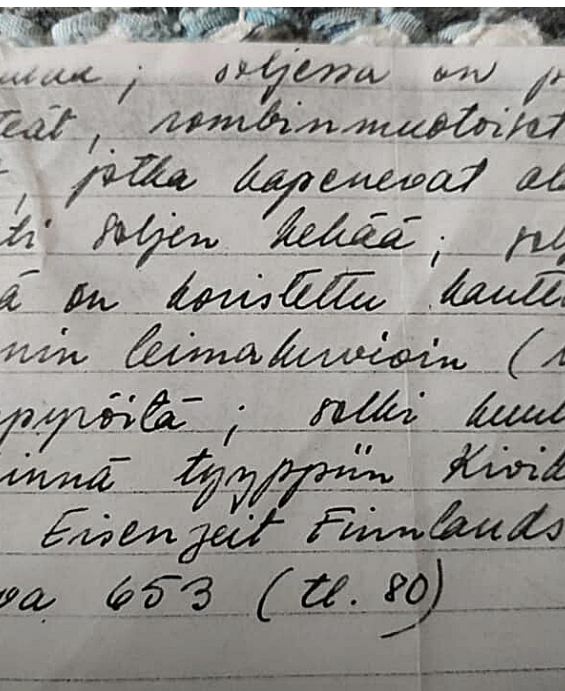 ; soljessa on p
teät, rombinmuotoiset
, jotka kapenevat al
ti soljen kehää; sol
ä on koristettu kautt
nin leimakuvioin (
pyröitä; solki kuul
innä tyyppiin Kivik
Eisenzeit Finnlands
va 653 (tl. 80)